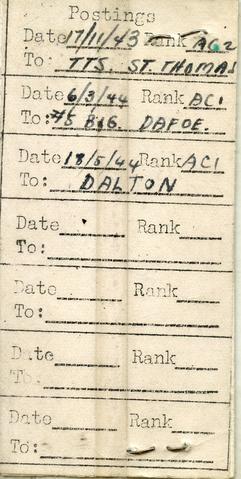 Postings
Date 17/11/43 Rank AC2
To: TTS. ST. THOMAS
Date 6/3/44 Rank AC1
To: #5 B&G. DAFOE.
Date 18/5/44 Rank AC1
To: DALTON
Date Rank
To:
Date Rank
To:
Date Rank
To:
Date Rank
To: